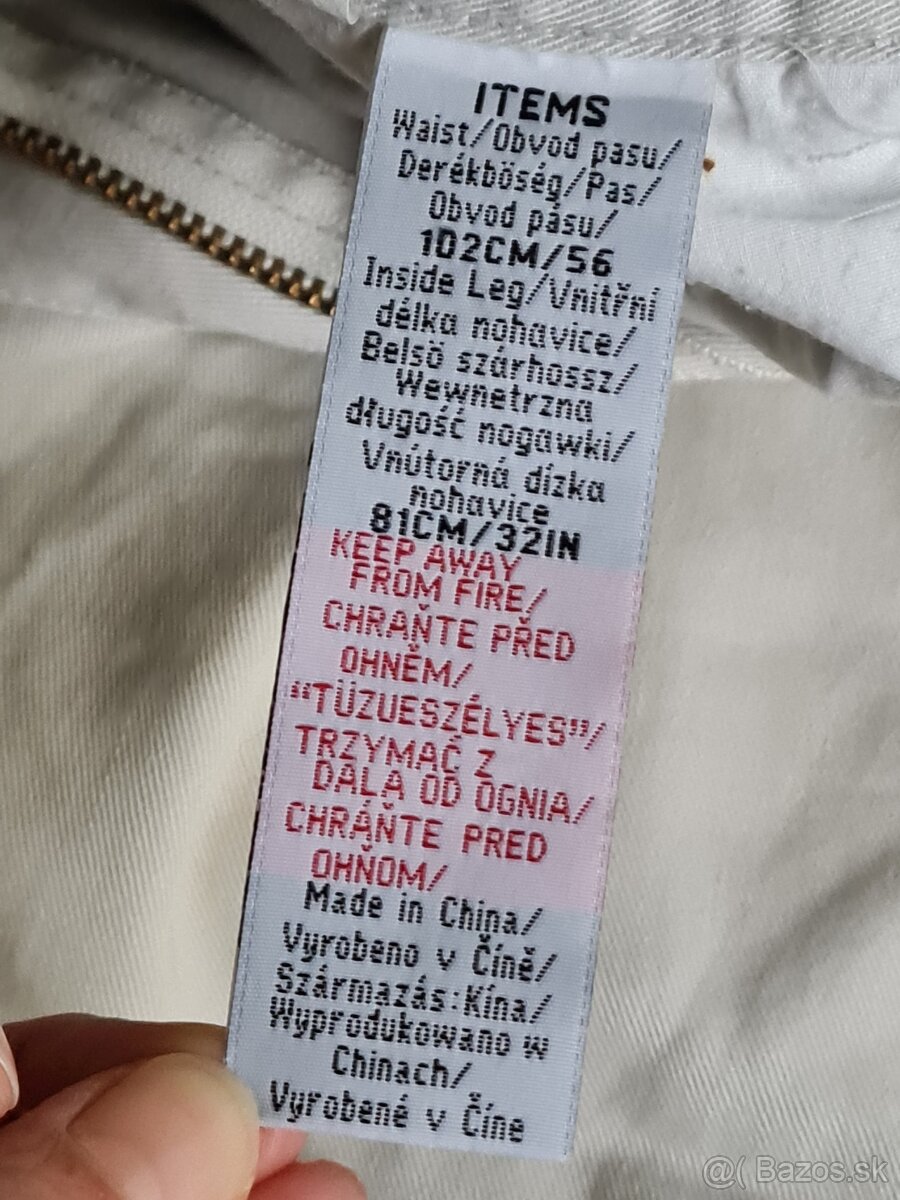 ITEMS
Waist/Obvod pasu/
Derékböség/Pas/
Obvod pásu/
102CM/56
Inside Leg/Vnitřní
délka nohavice/
Belsö szárhossz/
Wewnetrzna
długość nogawki/
Vnútorná dízka
nohavice
81CM/32IN
KEEP AWAY
FROM FIRE/
CHRAŇTE PŘED
OHNĚM/
“TÜZUESZÉLYES”/
TRZYMAĆ Z
DALA OD OGNIA/
CHRÁŇTE PRED
OHŇOM/
Made in China/
Vyrobeno v Číně/
Származás:Kína/
Wyprodukowano w
Chinach/
Vyrobené v Číne
@( Bazos.sk